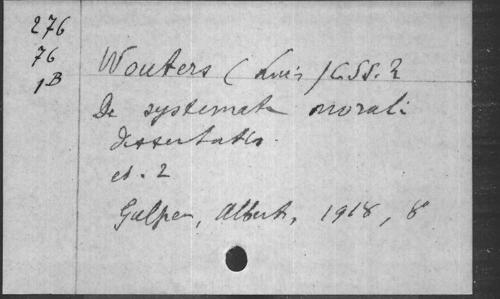 276
76
1B
Wouters (Luis) C.SS.R
De systemate morali
dissertatio.
ed. 2
Gulpen, Alberts, 1918, 8º